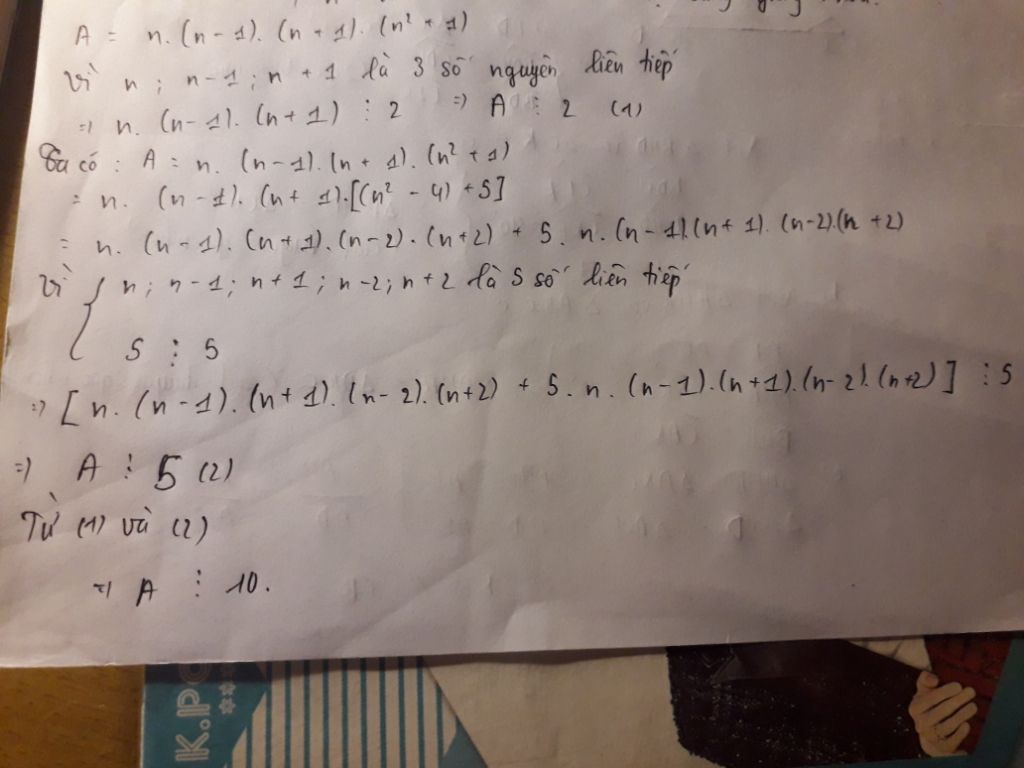 A = n.(n-1).(n+1).(n² + 1)
Vì n; n-1; n+1 là 3 số nguyên liên tiếp
=> n.(n-1).(n+1) ⋮ 2 => A ⋮ 2 (1)
Ta có: A = n.(n-1).(n+1).(n²+1)
= n.(n-1).(n+1).[(n² - 4) + 5]
= n.(n-1).(n+1).(n-2).(n+2) + 5.n.(n-1)(n+1).(n-2).(n+2)
Vì { n; n-1; n+1; n-2; n+2 là 5 số liên tiếp
5 ⋮ 5
=> [n.(n-1).(n+1).(n-2).(n+2) + 5.n.(n-1).(n+1).(n-2).(n+2)] ⋮ 5
=> A ⋮ 5 (2)
Từ (1) và (2)
=> A ⋮ 10.
K.PO